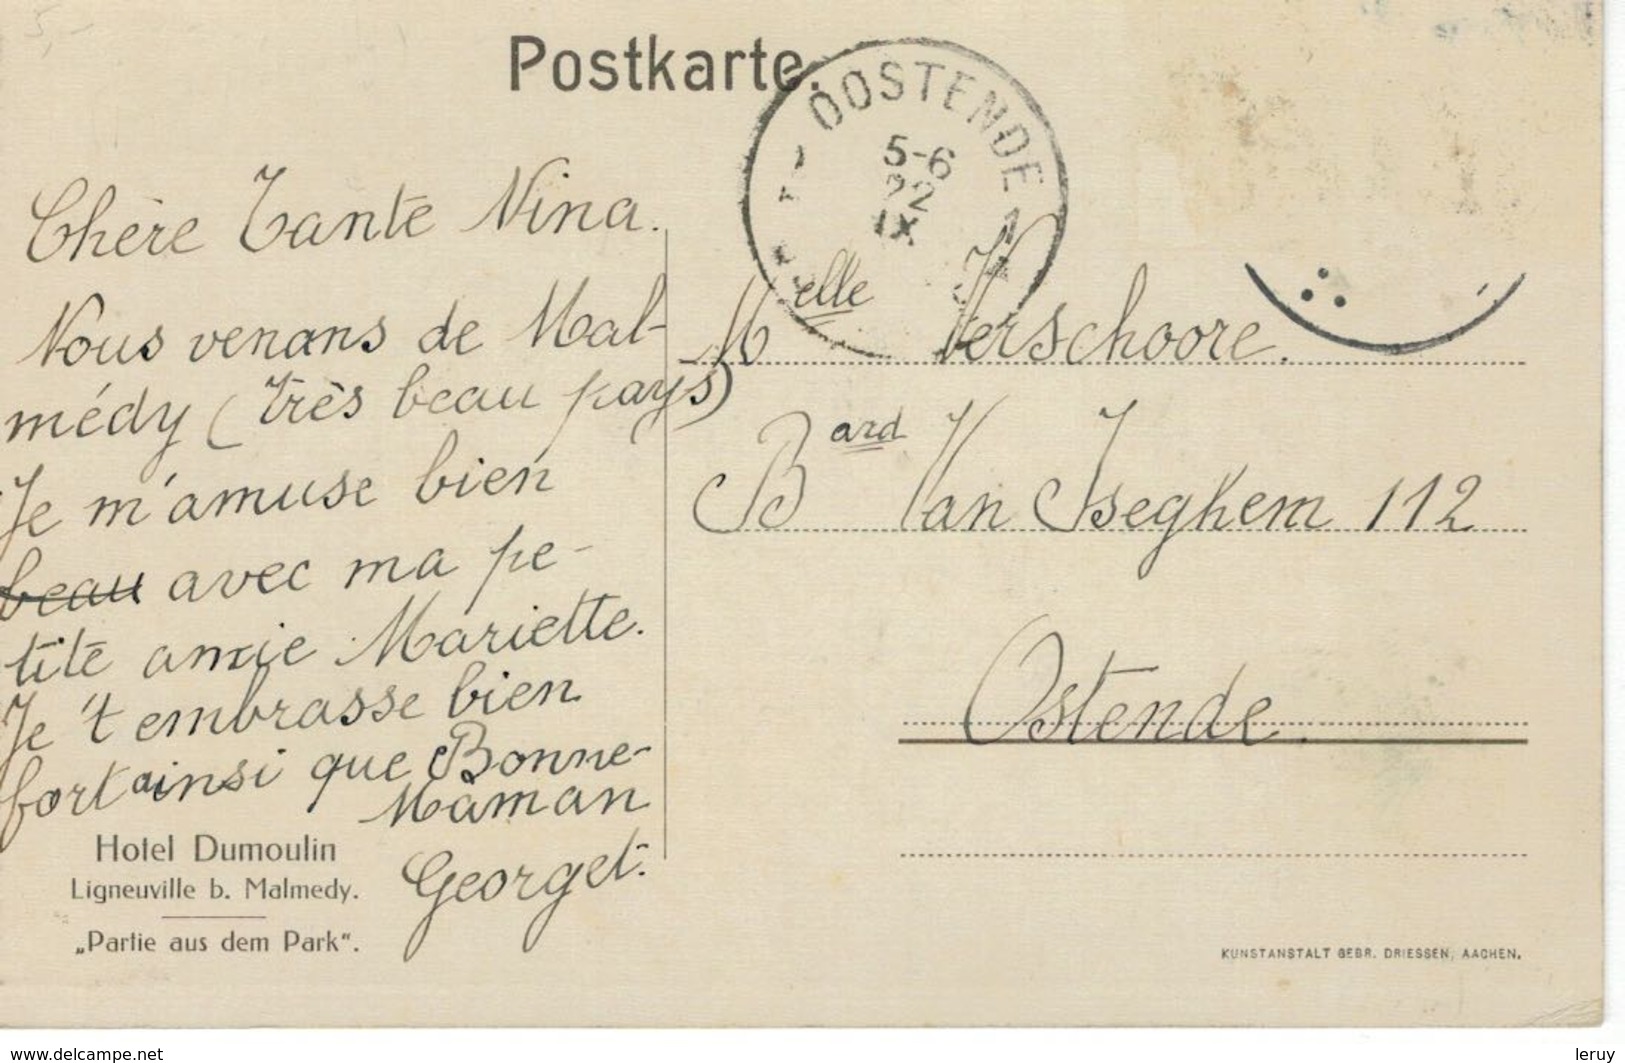 5,-
Postkarte.
OOSTENDE
5-6
22
IX
Chère Tante Nina.
Nous venans de Mal-
médy (très beau pays)
Je m'amuse bien
beau avec ma pe-
tite amie Mariette.
Je 't embrasse bien
fort ainsi que Bonne-
Maman
Georget.
Melle Verschoore.
Bard Van Iseghem 112
Ostende.
Hotel Dumoulin
Ligneuville b. Malmedy.
„Partie aus dem Park“.
KUNSTANSTALT GEBR. DRIESSEN, AACHEN.
www.delcampe.net
leruy